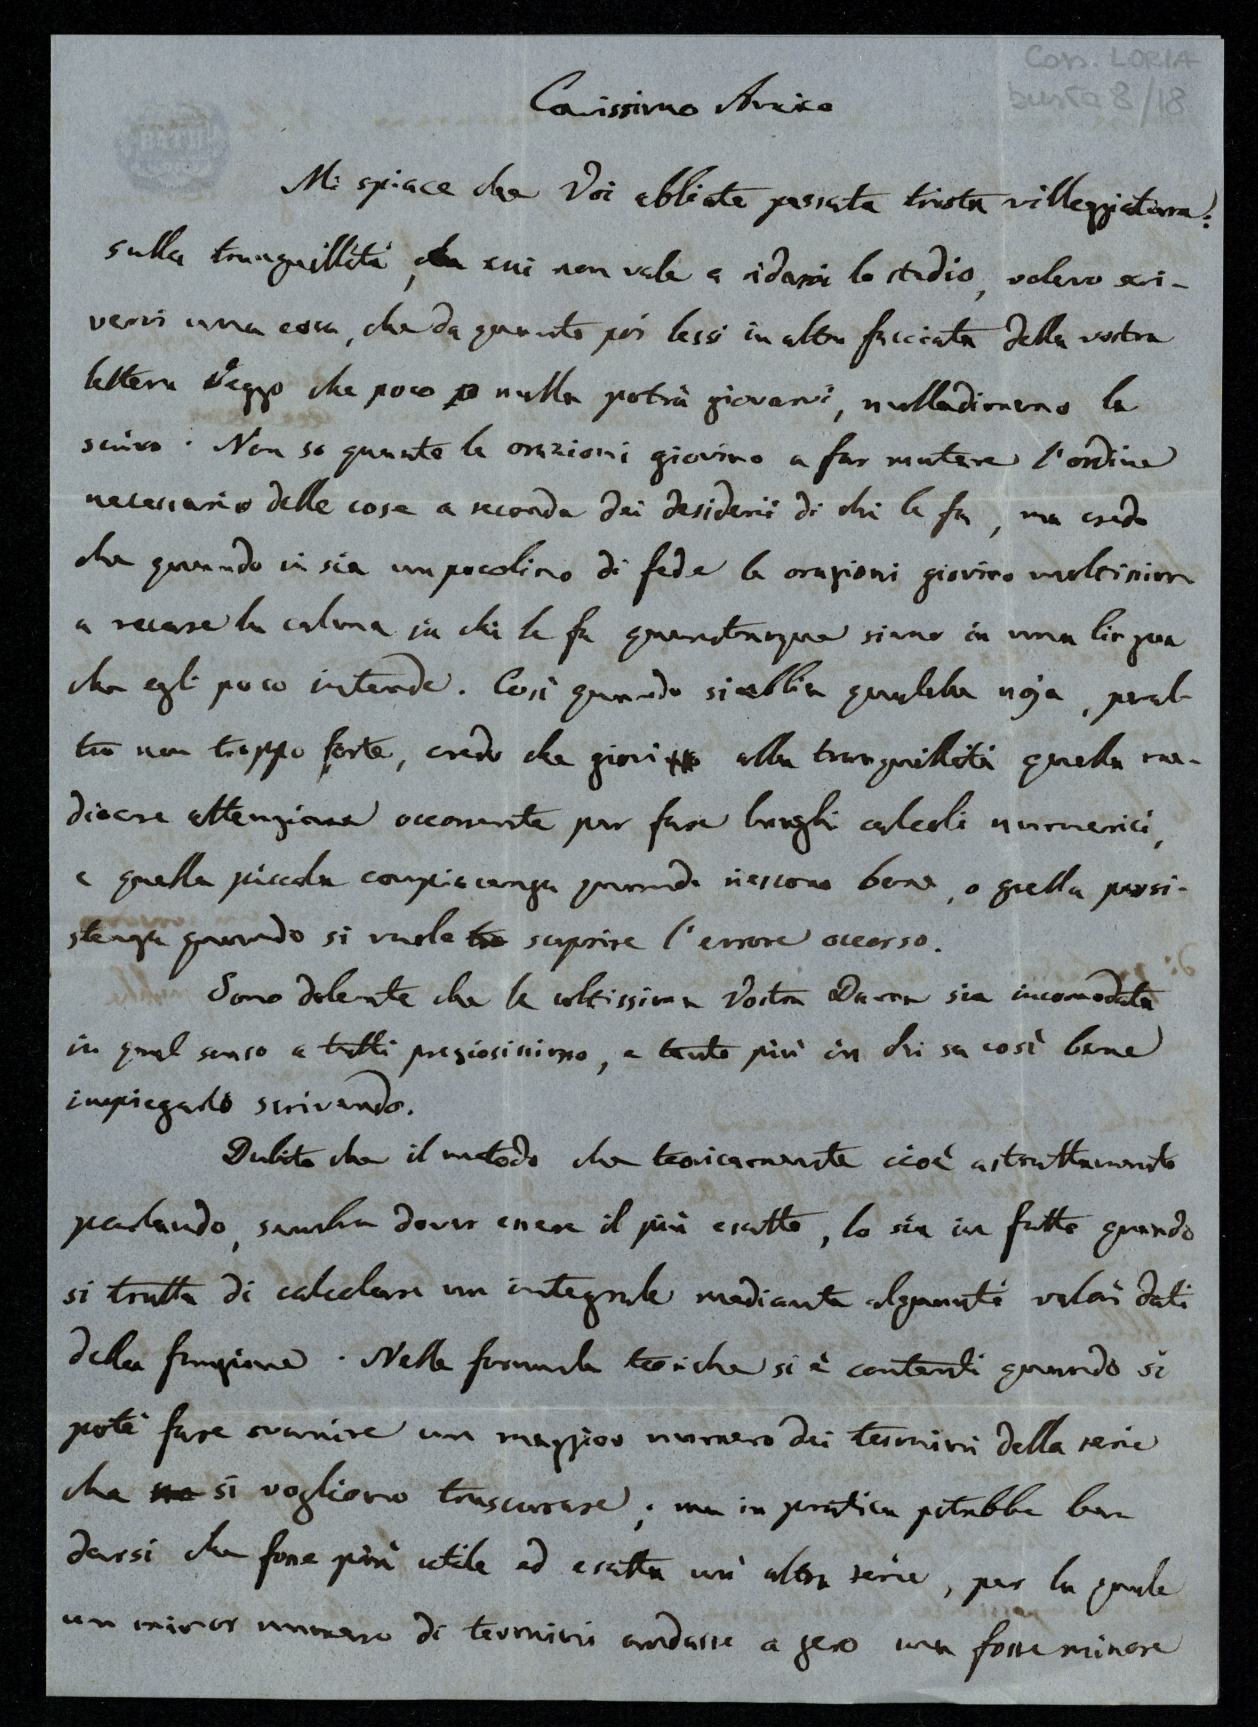 Con. LORIA
busta 8/18
Carissimo Amico
Mi spiace che Voi abbiate passata trista villeggiatura:
sulla tranquillità, a cui non vale a ridarvi lo studio, volevo scri-
vervi una cosa, che da quanto poi lessi in altra facciata della vostra
lettera Veggo che poco o nulla potrà giovarvi, nulladimeno la
scrivo. Non so quanto le orazioni giovino a far mutare l'ordine
necessario delle cose a seconda dei desiderii di chi le fa, ma credo
che quando vi sia un pocolino di fede le orazioni giovino moltissimo
a recare la calma in chi le fa quantunque siano in una lingua
che egli poco intende. Così quando si abbia qualche noja, peral-
tro non troppo forte, credo che giovi alla tranquillità quella me-
diocre attenzione occorrente per fare lunghi calcoli numerici,
e quella piccola compiacenza quando riescono bene, o quella persi-
stenza quando si vuole scoprire l'errore occorso.
Sono dolente che la coltissima Vostra Dama sia incomodata
in quel senso a tutti preziosissimo, e tanto più in chi sa così bene
impiegarlo scrivendo.
Dubito che il metodo che teoricamente cioè astrattamente
parlando, sembra dover essere il più esatto, lo sia in fatto quando
si tratta di calcolare un integrale mediante alquanti valori dati
della funzione. Nelle formule teoriche si è contenti quando si
poté fare svanire un maggior numero dei termini della serie
che si vogliono trascurare; ma in pratica potrebbe ben
darsi che fosse più utile ed esatta un'altra serie, per la quale
un minor numero di termini andasse a zero ma fosse minore